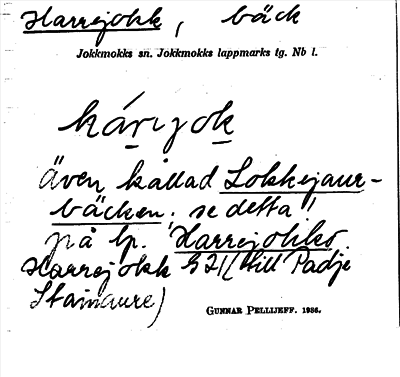 Harrejokk, bäck
Jokkmokks sn. Jokkmokks lappmarks tg. Nb l.
hár̲ɪjok̲
även kallad Lokkejaur-
bäcken. se detta!
på lp. Harrejokkå
Harrejokk S 21 (till Padje
Stainaure)
GUNNAR PELLIJEFF. 1936.